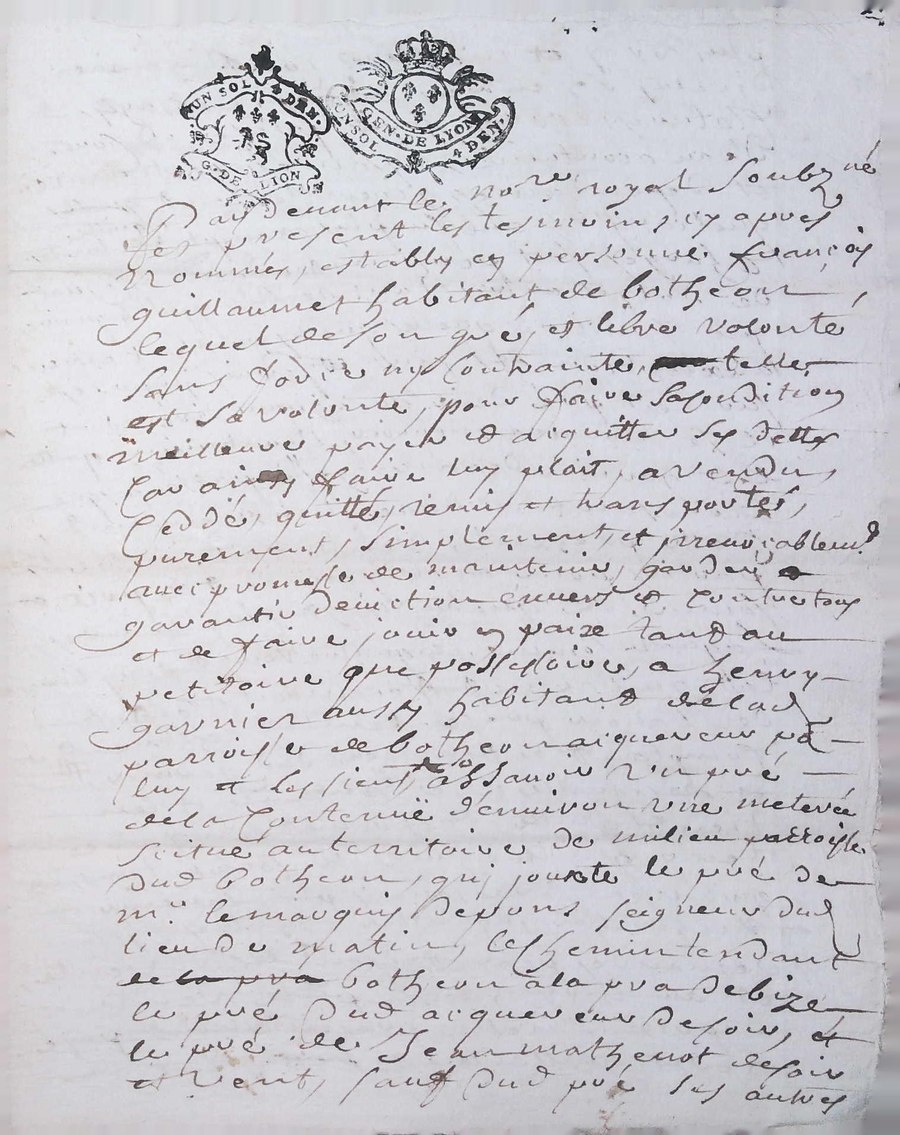 UN SOL 4 DEN.
G. DE LION
GEN. DE LION
UN SOL 4 DEN.
Pardevant le no.re royal soubz.né
et present les tesmoins cy apres
nommés, estably en personne françois
guillaumet habitant de botheon,
lequel de son gré, et libre volonté
sans force ny contrainte, telle
est sa volonté, pour faire sa condition
meilleure payer et acquitter ses dettes
Car ainsy faire luy plait, a vendu,
Ceddé, quitté, remis et transporté,
purement, simplement, et irrevocablem.t
avec promesse de maintenir, garder
garantir deviction envers et contre tous
et de faire jouir en paize tant au
petitoire que possessoire, a henry
garnier aussy habitant delad
parroisse de botheon acquereur po.
luy et les siens assavoir un pré
de la Contenuë denuiron une meterée
scitué au territoire de milieu parroisse
dud botheon, qui jouxte le pré de
m.r le marquis depons seigneur dud
lieu de matin, le chemin tendant
de la pra botheon a la pra de bize
le pré dud acquereur de soir, et
le pré de Jean mathenot de soir
et vent, sauf dud pré ses autres